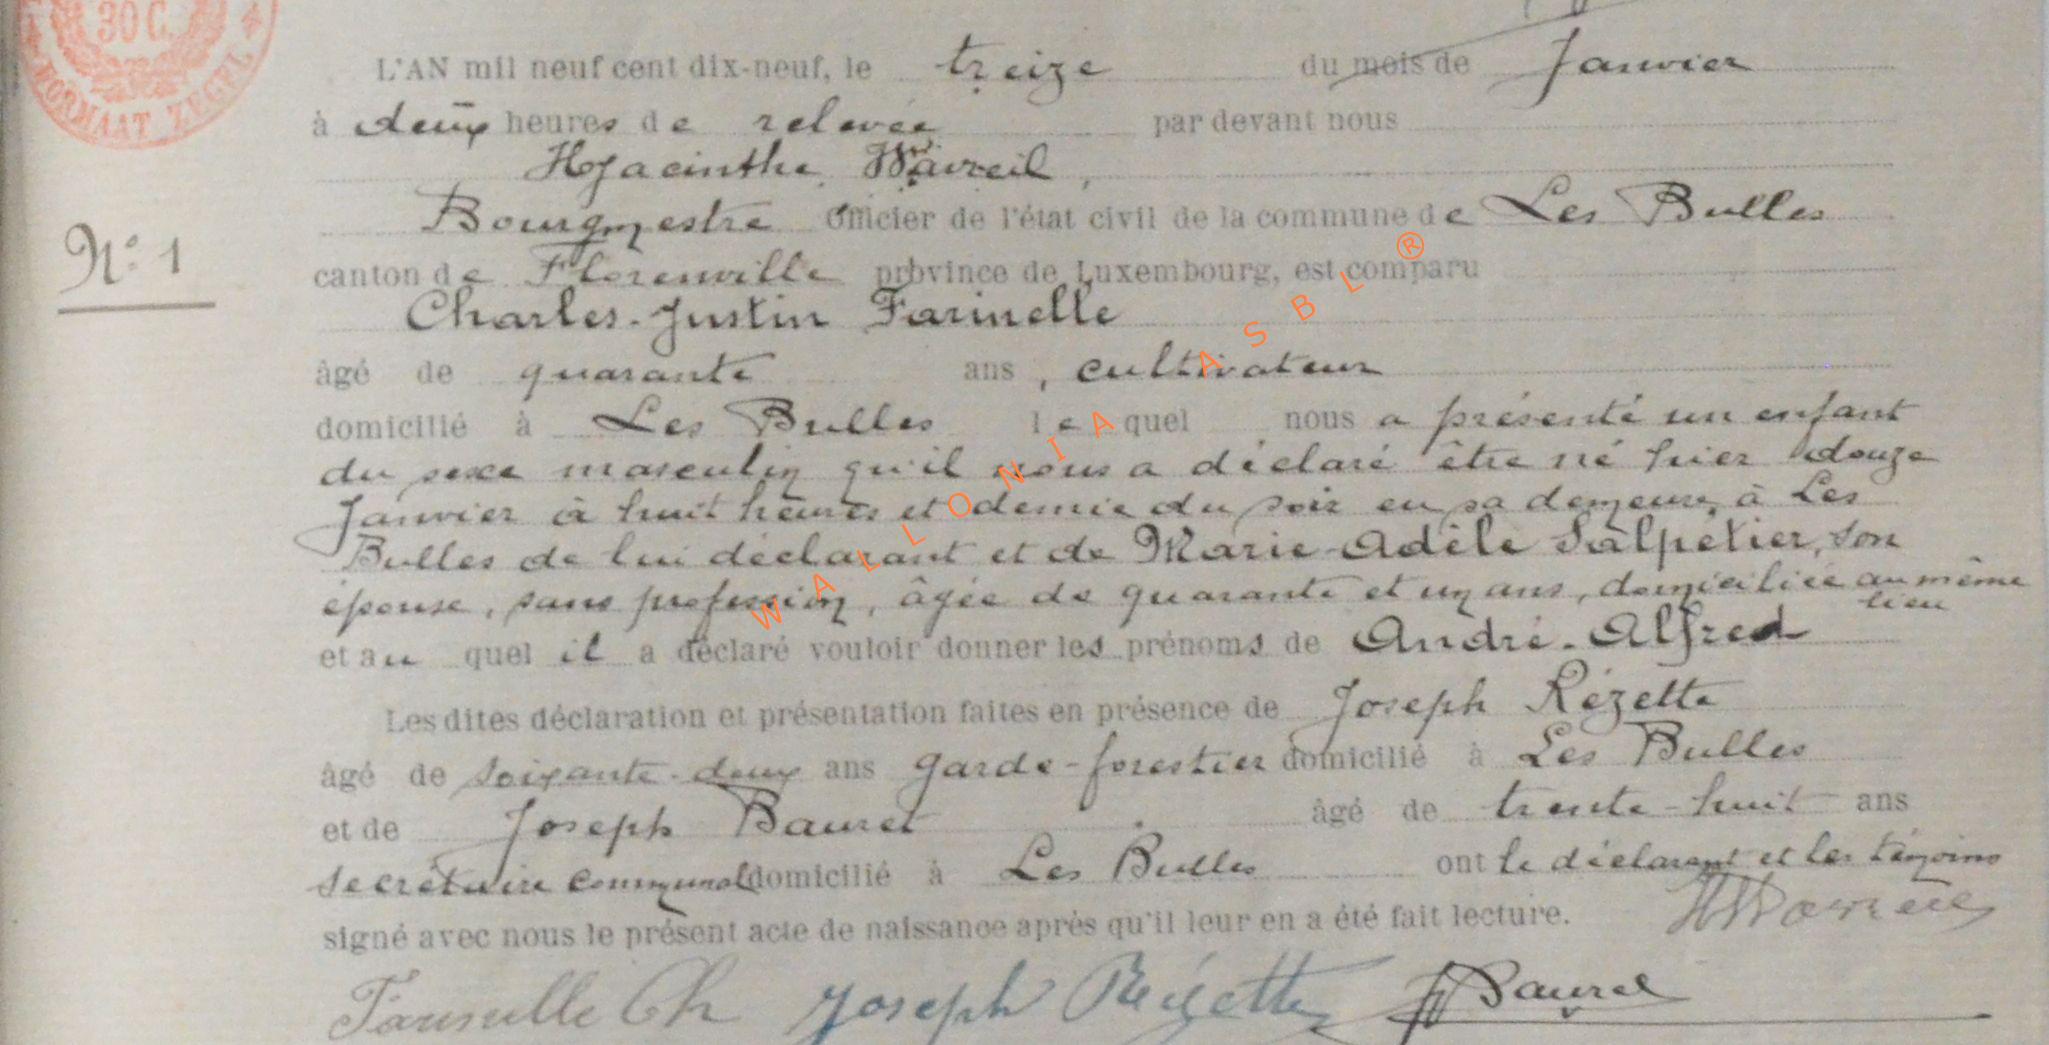 30 C.
FORMAAT ZEGEL
L'AN mil neuf cent dix-neuf, le treize du mois de Janvier
à deux heures de relevée par devant nous
Hyacinthe Wavreil,
Bourgmestre Officier de l'état civil de la commune de Les Bulles
N° 1
canton de Florenville province de Luxembourg, est comparu
Charles-Justin Farinelle
âgé de quarante ans, cultivateur
domicilié à Les Bulles lequel nous a présenté un enfant
du sexe masculin qu'il nous a déclaré être né hier douze
Janvier à huit heures et demie du soir en sa demeure à Les
Bulles de lui déclarant et de Marie-Adèle Salpétier, son
épouse, sans profession, âgée de quarante et un ans, domiciliée au même
lieu
et au quel il a déclaré vouloir donner les prénoms de André-Alfred
Les dites déclaration et présentation faites en présence de Joseph Rézette
âgé de soixante-deux ans garde-forestier domicilié à Les Bulles
et de Joseph Bauret âgé de trente-huit ans
secrétaire communal domicilié à Les Bulles ont le déclarant et les témoins
signé avec nous le présent acte de naissance après qu'il leur en a été fait lecture. HWavreil
Farinelle Ch Joseph Rézette JBauret
WALLONIA ASBL ®